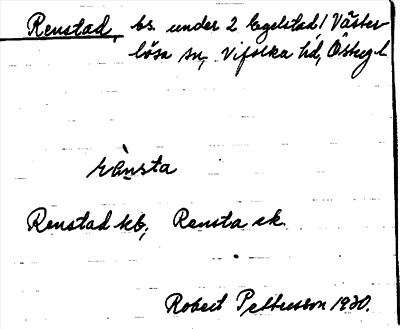 Renstad, bs. under 2 Egelstad, Väster
lösa sn, Vifolka hd, Östergl
rènsta
Renstad kb, Rensta ek.
Robert Pettersson 1930.